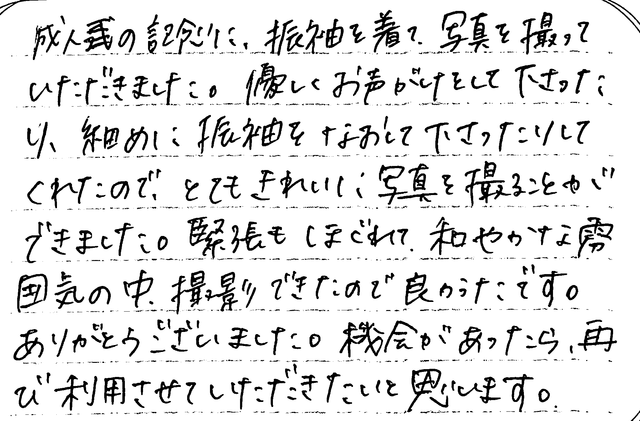 成人式の記念に、振袖を着て、写真を撮って
いただきました。優しくお声がけをして下さった
り、細めに振袖をなおして下さったりして
くれたので、とてもきれいに写真を撮ることが
できました。緊張もしほぐれて、和やかな雰
囲気の中、撮影できたので良かったです。
ありがとうございました。機会があったら、再
び利用させていただきたいと思います。